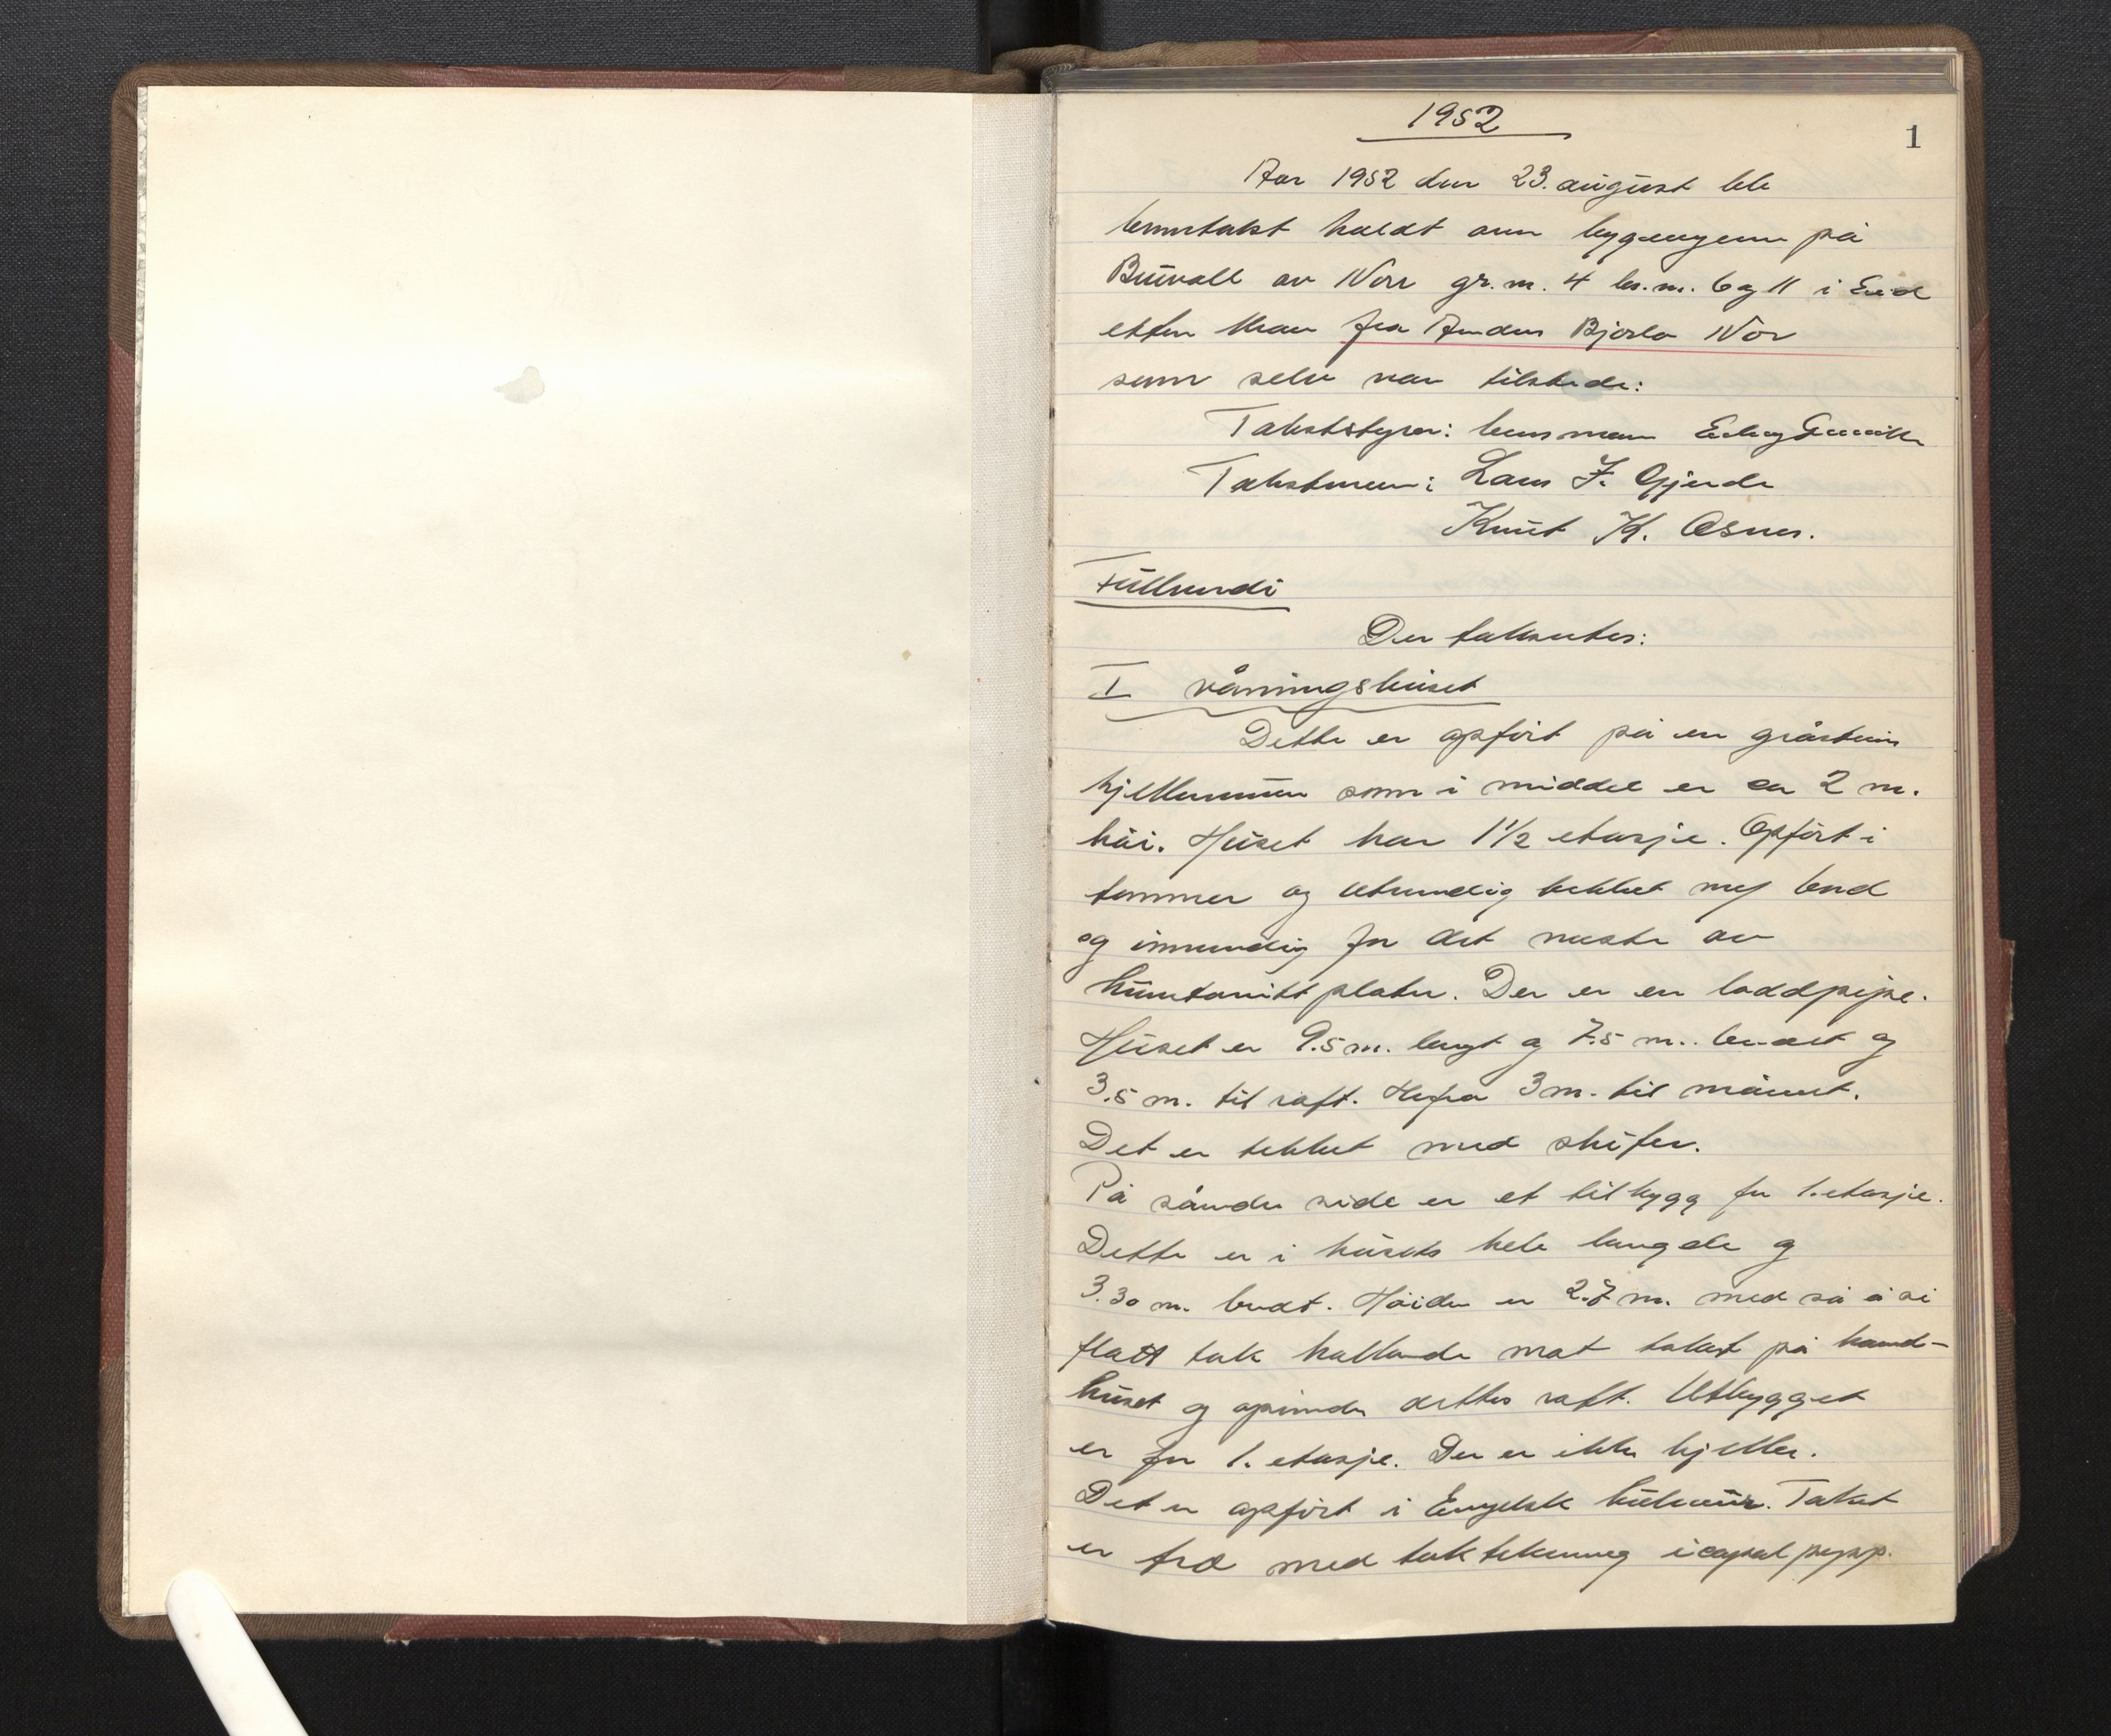 1952
1
Aar 1952 den 23. august ble
branntakst holdt over bygningene på
Buvoll av Nor gr.nr. 4 br.nr. 6 og 11 i Eid
etter krav fra Anders Bjørlo Nor
som selv var tilstede:
Takststyrer: lensmann
Takstmenn: Lars J. Gjerde
Knut K. Osnes.
Fullverdi
Der taksertes:
I våningshuset
Dette er opført på en gråsteins
kjellermur som i middel er ca 2 m.
høi. Huset har 1 1/2 etasje. Opført i
tømmer og utvendig kledt med bord
og innvendig for det meste av
huntonittplater. Der er en loddpipe.
Huset er 9.5 m. langt og 7.5 m. bredt og
3.5 m. til raft. Herfra 3 m. til mønet.
Det er tekket med skifer.
På søndre side er et tilbygg for 1. etasje.
Dette er i husets hele lengde og
3.30 m. bredt. Høiden er 2.7 m. med så å si
flatt tak hallende mot taket på hoved-
huset og opunder dettes raft. Utbygget
er for 1. etasje. Der er ikke kjeller.
Det er opført i Engelsk hulmur. Taket
er tre med taktekning icopal papp.